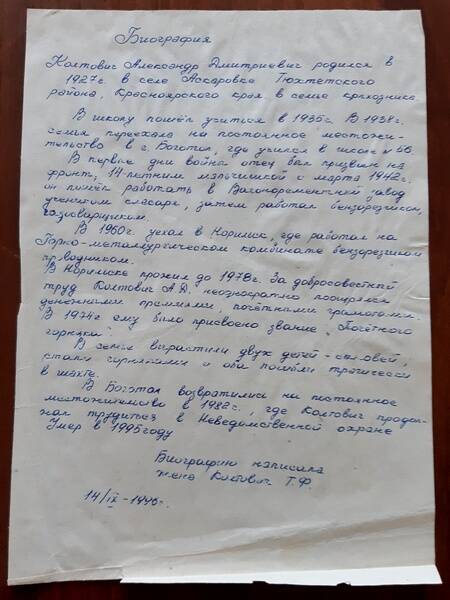 Биография
Колтович Александр Дмитриевич родился в
1927г. в селе Аскаровка Тюхтетского
района, Красноярского края в семье крпхозника.
В школу пошёл учиться в 1935г. В 1938г.
семья переехала на постоянное местожи-
тельство в г. Боготол, где учился в школе № 56.
В первые дни войны отец был призван на
фронт, 14-летним мальчишкой с марта 1942г.
он пошёл работать в Вагоноремонтный завод
учеником слесаря, затем работал бензорезчиком,
газоварщиком.
В 1960г. уехал в Норильск, где работал на
Горно-металлургическом комбинате бензорезчиком
проводником.
В Норильске прожил до 1978г. За добросовестный
труд Колтович А.Д. неоднократно поощрялся
денежными премиями, почётными грамотами.
В 1974г ему было присвоено звание „Почётного
горняка".
В семье вырастили двух детей-сыновей,
стали горняками и оба погибли трагически
в шахте.
В Боготол возвратились на постоянное
местожительство в 1982г., где Колтович продол-
жал трудиться в Неведомственной охране
Умер в 1995году
Биографию написала
жена Колтович Т.Ф.
14/IX-1996г.